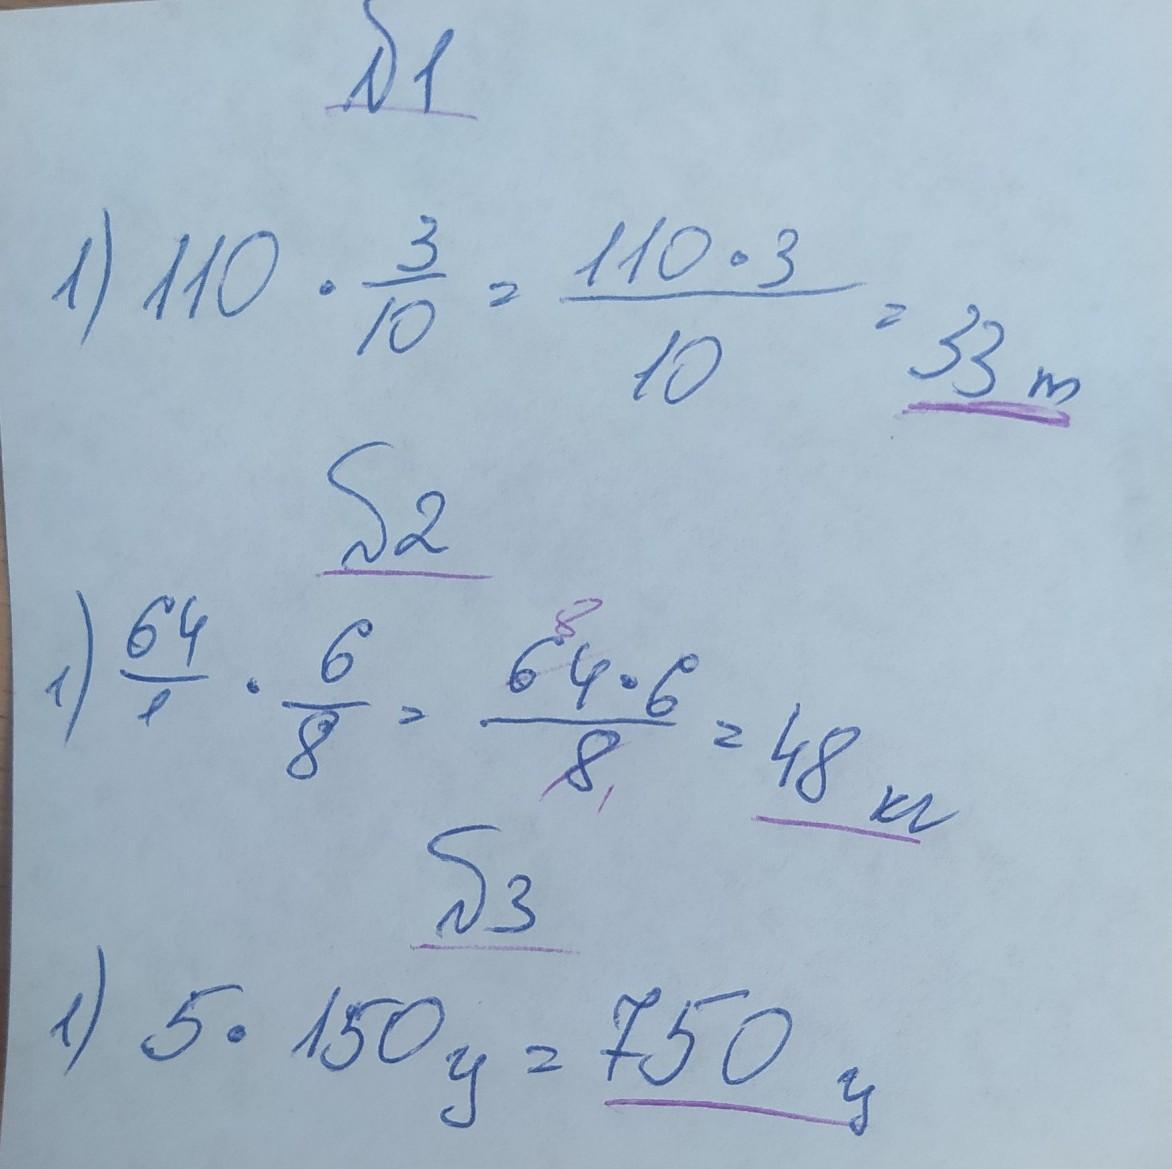 №1
1) 110 · 3/10 = 110·3/10 = 33 т
№2
1) 64/1 · 6/8 = 64⁸·6/8₁ = 48 кг
№3
1) 5 · 150 у = 750 у